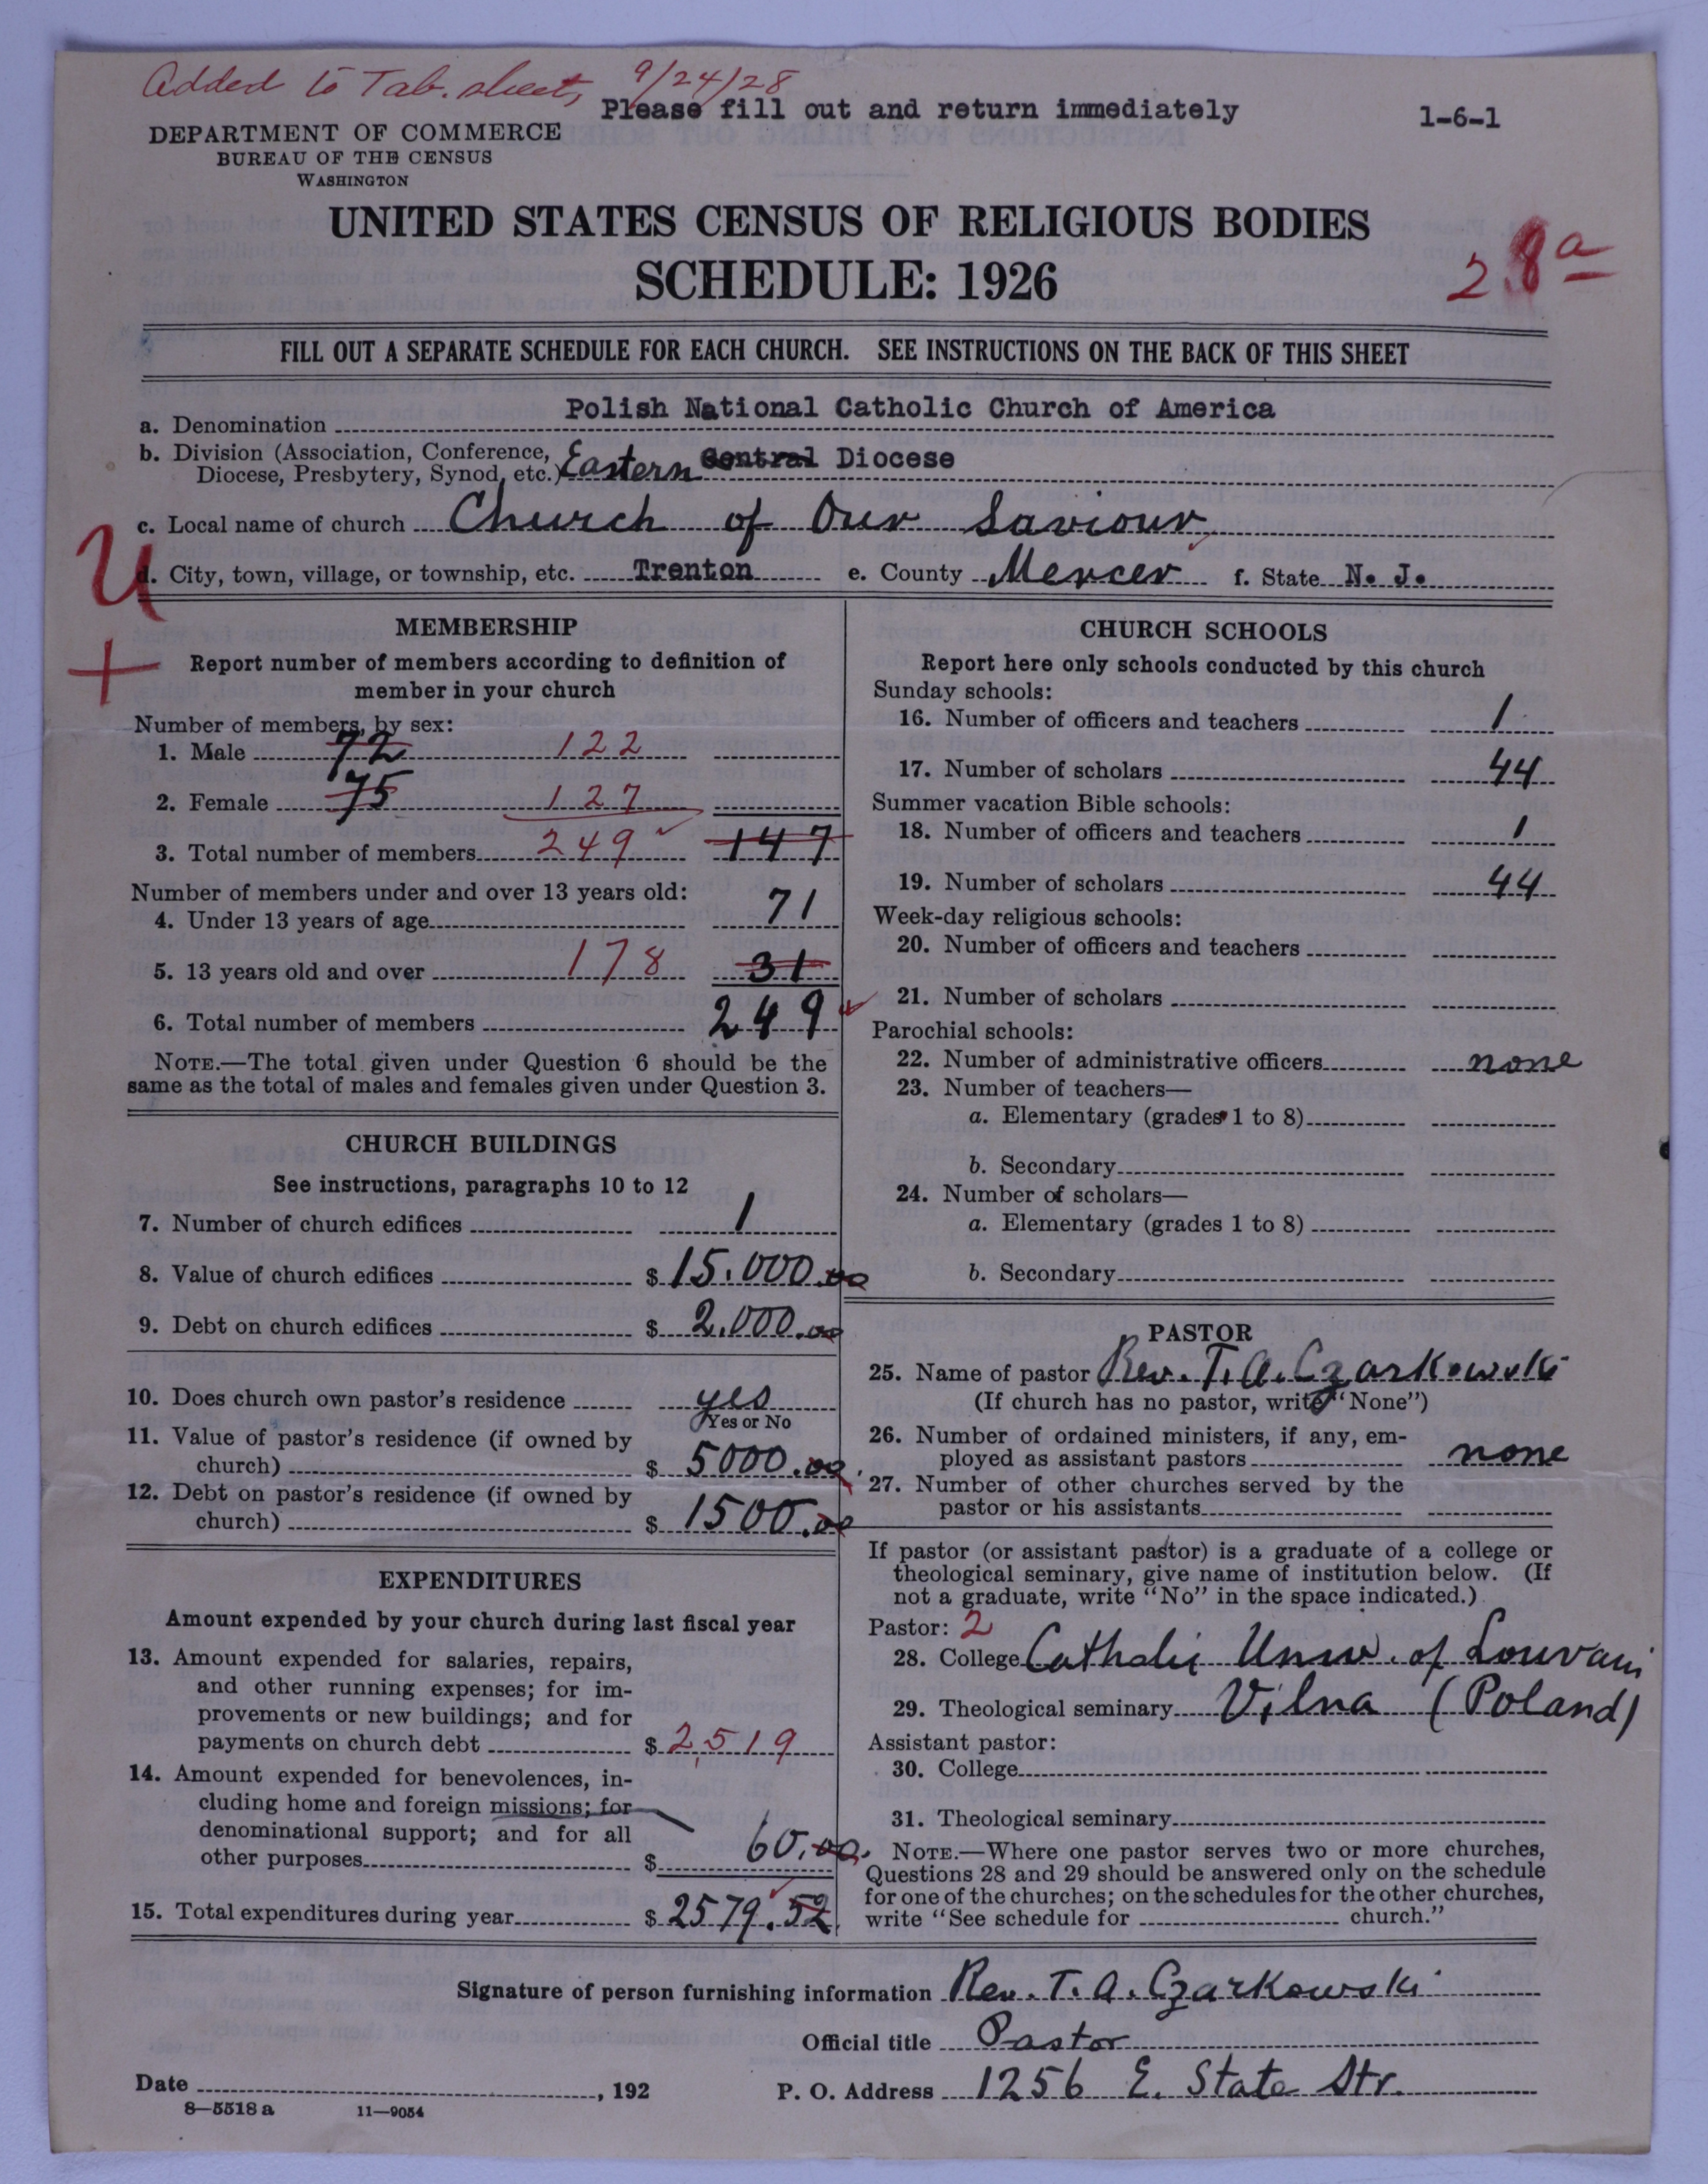 Added to Tab. sheet, 9/24/28
Please fill out and return immediately
1-6-1
DEPARTMENT OF COMMERCE
BUREAU OF THE CENSUS
WASHINGTON
UNITED STATES CENSUS OF RELIGIOUS BODIES
SCHEDULE: 1926
28a
FILL OUT A SEPARATE SCHEDULE FOR EACH CHURCH. SEE INSTRUCTIONS ON THE BACK OF THIS SHEET
a. Denomination Polish National Catholic Church of America
b. Division (Association, Conference,
Diocese, Presbytery, Synod, etc.) Eastern Central Diocese
c. Local name of church Church of Our Saviour
U
d. City, town, village, or township, etc. Trenton e. County Mercer f. State N. J.
+
MEMBERSHIP
Report number of members according to definition of
member in your church
Number of members, by sex:
1. Male 72 122
2. Female 75 127
3. Total number of members 249 147
Number of members under and over 13 years old:
4. Under 13 years of age 71
5. 13 years old and over 178 31
6. Total number of members 249
NOTE.—The total given under Question 6 should be the
same as the total of males and females given under Question 3.
CHURCH BUILDINGS
See instructions, paragraphs 10 to 12
7. Number of church edifices 1
8. Value of church edifices $ 15.000.00
9. Debt on church edifices $ 2.000.00
10. Does church own pastor's residence yes
Yes or No
11. Value of pastor's residence (if owned by
church) $ 5000.00
12. Debt on pastor's residence (if owned by
church) $ 1500.00
EXPENDITURES
Amount expended by your church during last fiscal year
13. Amount expended for salaries, repairs,
and other running expenses; for im-
provements or new buildings; and for
payments on church debt $ 2,519
14. Amount expended for benevolences, in-
cluding home and foreign missions; for
denominational support; and for all
other purposes $ 60.00
15. Total expenditures during year $ 2579.52
CHURCH SCHOOLS
Report here only schools conducted by this church
Sunday schools:
16. Number of officers and teachers 1
17. Number of scholars 44
Summer vacation Bible schools:
18. Number of officers and teachers 1
19. Number of scholars 44
Week-day religious schools:
20. Number of officers and teachers
21. Number of scholars
Parochial schools:
22. Number of administrative officers none
23. Number of teachers—
a. Elementary (grades 1 to 8)
b. Secondary
24. Number of scholars—
a. Elementary (grades 1 to 8)
b. Secondary
PASTOR
25. Name of pastor Rev. T. A. Czarkowski
(If church has no pastor, write "None")
26. Number of ordained ministers, if any, em-
ployed as assistant pastors none
27. Number of other churches served by the
pastor or his assistants
If pastor (or assistant pastor) is a graduate of a college or
theological seminary, give name of institution below. (If
not a graduate, write "No" in the space indicated.)
Pastor: 2
28. College Catholic Univ. of Louvain
29. Theological seminary Vilna (Poland)
Assistant pastor:
30. College
31. Theological seminary
NOTE.—Where one pastor serves two or more churches,
Questions 28 and 29 should be answered only on the schedule
for one of the churches; on the schedules for the other churches,
write "See schedule for church."
Signature of person furnishing information Rev. T. A. Czarkowski
Official title Pastor
Date , 192
P. O. Address 1256 E. State Str.
8—5518 a 11—9054